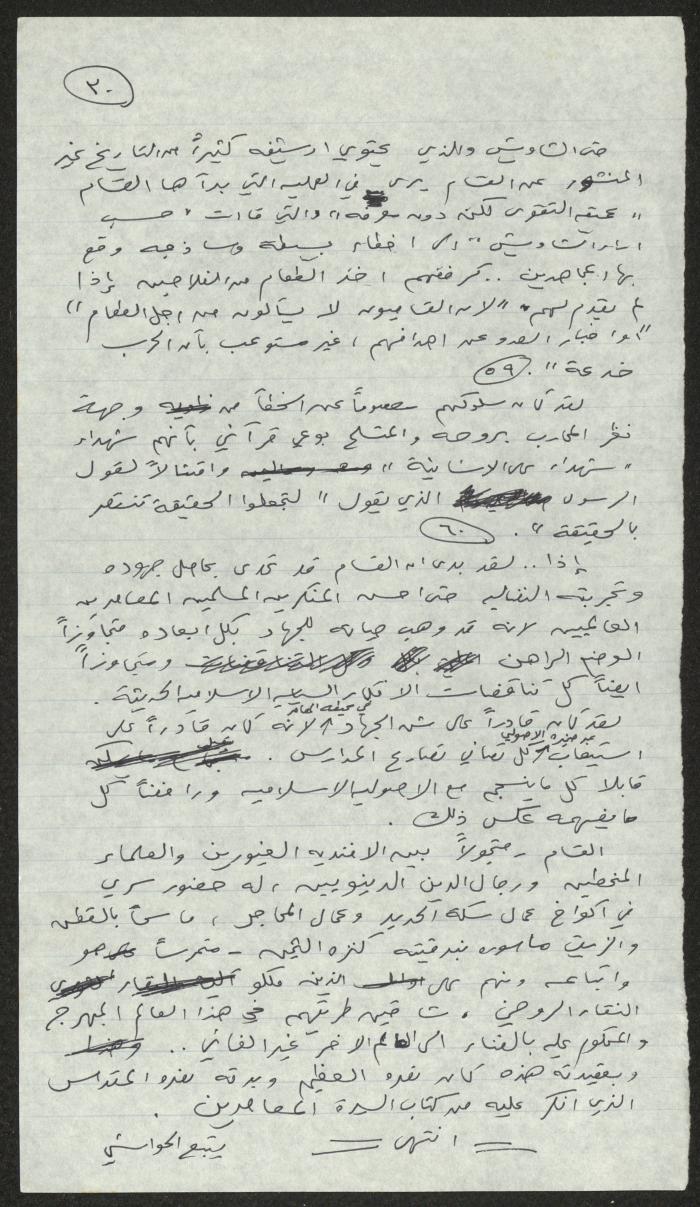 ٣٠
حتى الشاويش والذي يحتوي ارشيفه كثيراً من التاريخ غير
المنشور عن القسام يرى في العملية التي بدأها القسام
"بمنتهى التقوى لكن دون معرفة" والتي قادت "حسب
الشاويش" الى اخطاء بسيطة وساذجه وقع
بها المجاهدين .. كرفضهم اخذ الطعام من الفلاحين إذا
لم يقدم لهم "لان القساميون لا يسألون من اجل الطعام"
"او اخبار العدو عن اهدافهم، غير مستوعب بأن الحرب
خدعة". ٥٩
لقد كان سلوكهم معصوماً عن الخطأ من وجهة
نظر المحارب بروحه والمتسلح بوعي قرآني بأنهم شهداء
"شهداء على الانسانية" وامتثالاً لقول
الرسول الذي يقول "لتجعلوا الحقيقة تنتصر
بالحقيقة". ٦٠
إذا .. لقد بدى ان القسام قد تحدى بحاصل جهوده
وتجربته النضاليه حتى احسن المفكرين المسلمين المعاصرين
العالميين لانه قد وهب حياته للجهاد بكل ابعاده متجاوزاً
الوضع الراهن ومتجاوزاً
ايضاً كل تناقضات الافكار السياسيه الاسلاميه الحديثة.
لقد كان قادراً على شن الجهاد في محيطه الخاص لانه كان قادراً على
استيعاب عبر منبره الاصولي كل تعاني تصارع المدارس.
قابلا كل ما ينسجم مع الاصوليه الاسلاميه ورافضاً كل
ما يفهمه عكس ذلك.
القسام - متجولاً بين الافنديه الغيورين والعلماء
المنحطين ورجال الدين الدنيويين، له حضور سري
في اكواخ عمال سكة الحديد وعمال المحاجر، ماسحاً بالقطن
والزيت ماسورة بندقيته كنزه الثمين - متمرساً هو
واتباعه ومنهم الذين ملكو
النقاء الروحي، شاقين طريقهم في هذا العالم المبهرج
والمحكوم عليه بالفناء الى العالم الاخر غير الفاني ..
وبعقيدته هذه كان نفره العظيم وبدته نفره المقتدس
الذي انكر عليه من كتاب السيرة المعاصرين.
= انتهى = يتبع الحواشي